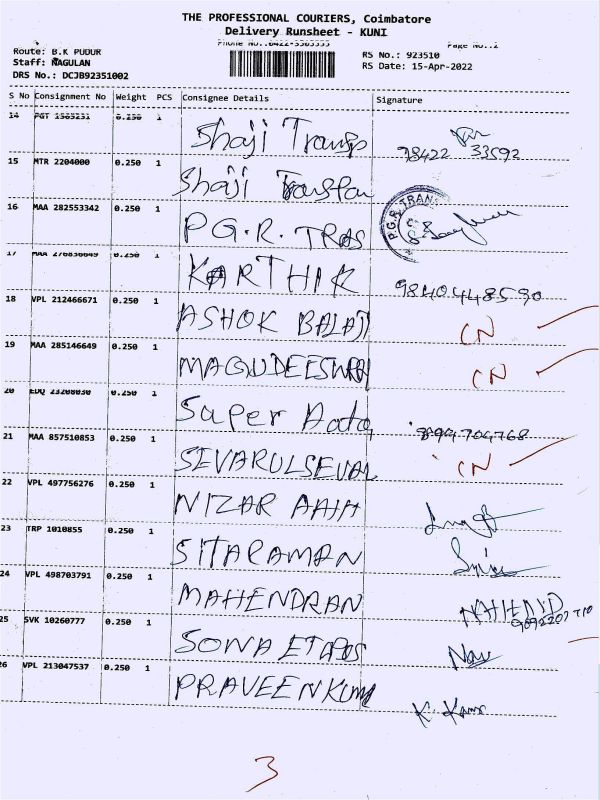 THE PROFESSIONAL COURIERS, Coimbatore
Delivery Runsheet - KUNI
Phone No.:0422- Page No.:2
Route: B.K PUDUR RS No.: 923510
Staff: NAGULAN RS Date: 15-Apr-2022
DRS No.: DCJB92351002
S No Consignment No Weight PCS Consignee Details Signature
14 PGT 1 Shaji Transp
98422 33592
15 MTR 2204000 0.250 1 Shaji
16 MAA 282553342 0.250 1 P.G.R. TRAS P.G.R. TRAN
17 MAA 276836649 0.250 1 KARTHIK 9840448590
18 VPL 212466671 0.250 1 ASHOK BALAJI CN
19 MAA 285146649 0.250 1 MAGUDEESWRAJ CN
20 EDQ 23208030 0.250 1 Super Data
21 MAA 857510853 0.250 1 SEVARULSEVAL CN
22 VPL 497756276 0.250 1 NIZAR
23 TRP 1010855 0.250 1 SITARAMAN
24 VPL 498703791 0.250 1 MAHENDRAN
25 SVK 10260777 0.250 1 SONA
26 VPL 213047537 0.250 1 PRAVEENKUM K. Kann
3